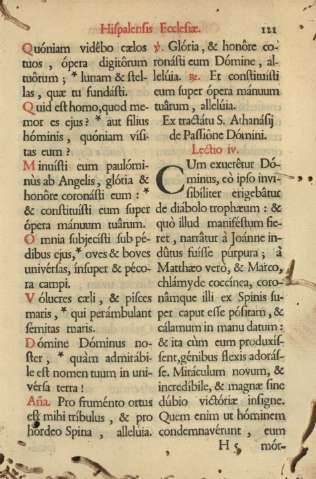 Hispalensis Ecclesiæ. 121
Quóniam vidébo cælos
tuos, ópera digitórum
tuórum; * lunam & stel-
las, quæ tu fundásti.
Quid est homo, quod me-
mor es ejus? * aut filius
hóminis, quóniam visi-
tas eum?
Minuísti eum paulómi-
nùs ab Angelis, glória &
honóre coronásti eum: *
& constituísti eum super
ópera mánuum tuárum.
Omnia subjecísti sub pé-
dibus ejus, * oves & boves
univérsas, ínsuper & péco-
ra campi.
Vólucres cæli, & pisces
maris, * qui perámbulant
semitas maris.
Dómine Dóminus no-
ster, * quàm admirábi-
le est nomen tuum in uni-
vérsa terra!
Aña. Pro fruménto ortus
est mihi tríbulus, & pro
hórdeo Spina, alleluia.
℣. Glória, & honóre co-
ronásti eum Dómine, al-
lelúia. ℟. Et constituísti
eum super ópera mánuum
tuárum, allelúia.
Ex tractátu S. Athanásij
de Passióne Dómini.
Lectio iv.
CUm exuerétur Dó-
minus, eò ipso invi-
sibíliter erigebátur
de diábolo trophæum: &
quò illud maniféstum fíe-
ret, narrátur à Joánne in-
dútus fuísse púrpura; à
Matthæo verò, & Marco,
chlámyde coccínea, coro-
námque illi ex Spinis su-
per caput esse pósitam, &
cálamum in manu datum:
& ita cùm eum produxís-
sent, génibus flexis adorás-
se. Miráculum novum, &
incredíbile, & magnæ sine
dúbio victóriæ insígne.
Quem enim ut hóminem
condemnavérunt, eum
H 5 mór-